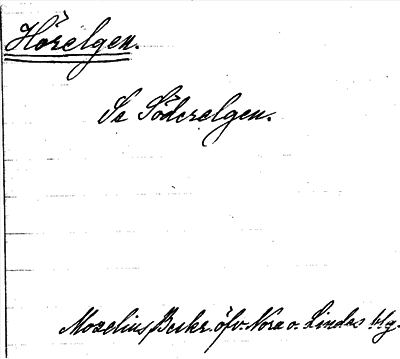 Hörelgen.
Se Söderelgen.
Moselius, Beskr. öfv. Nora o. Lindes